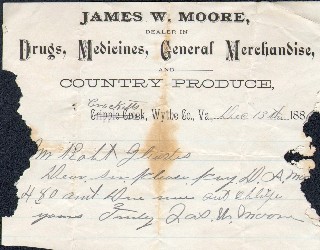 JAMES W. MOORE,
DEALER IN
Drugs, Medicines, General Merchandise,
AND
COUNTRY PRODUCE,
Crocketts
Cripple Creek, Wythe Co., Va. Dec 13th 188
Mr Robt
Dear Sir please pay D. A. M
4 80 amt Due me and Oblige
yours Truly Jas. W. Moore